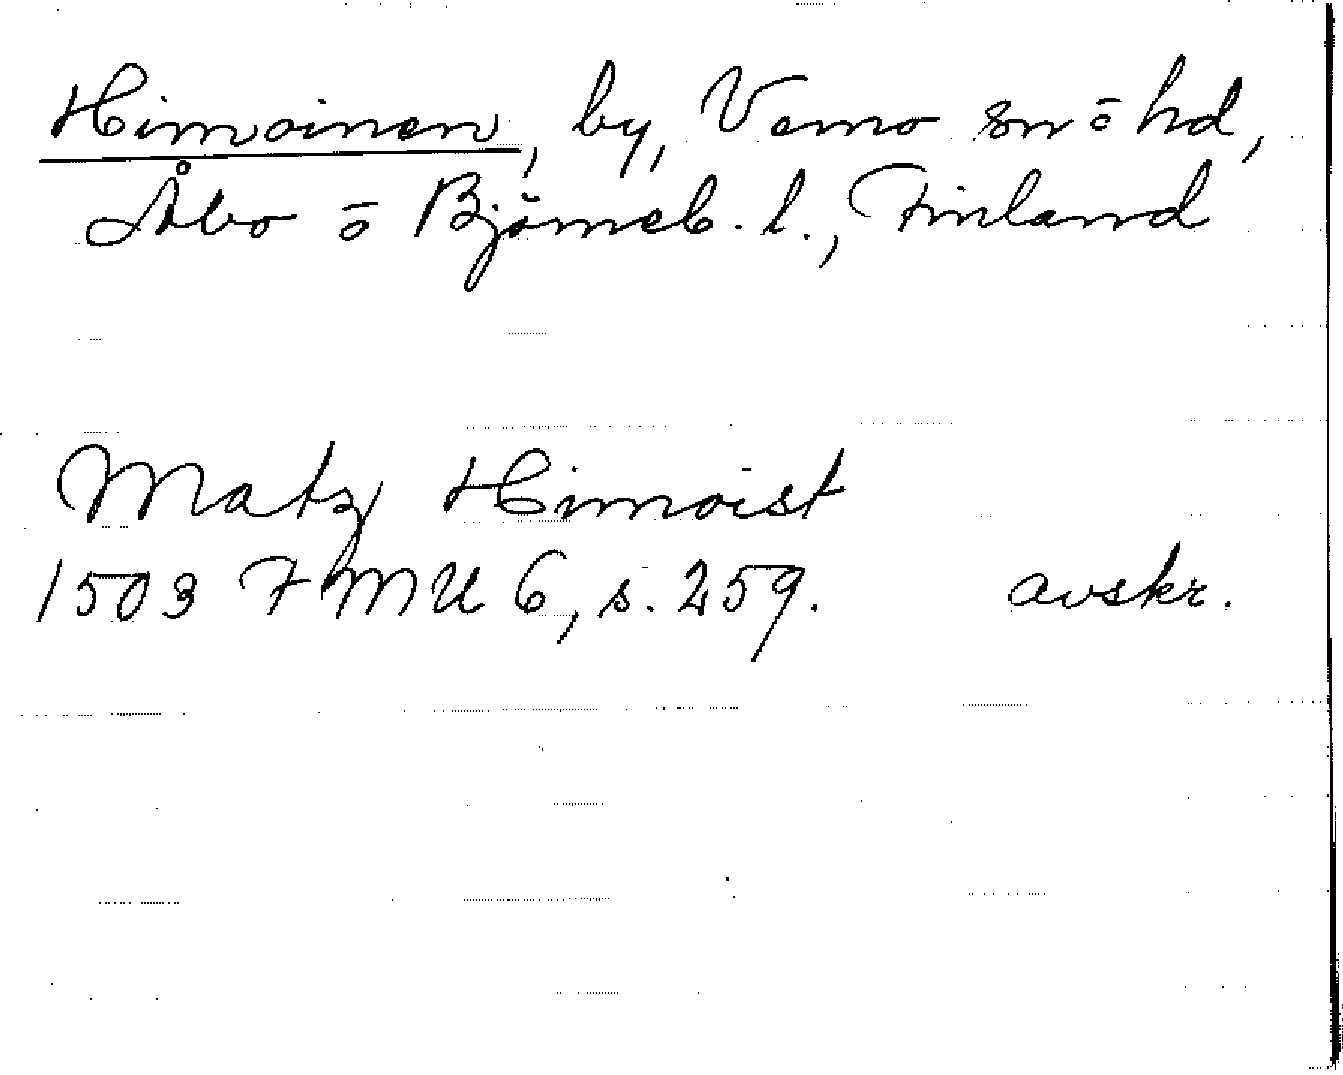 Himoinen, by, Vemo sn ō hd,
Åbo ō Björneb. l., Finland
Matz Himoist
1503 FMU 6, s. 259. avskr.